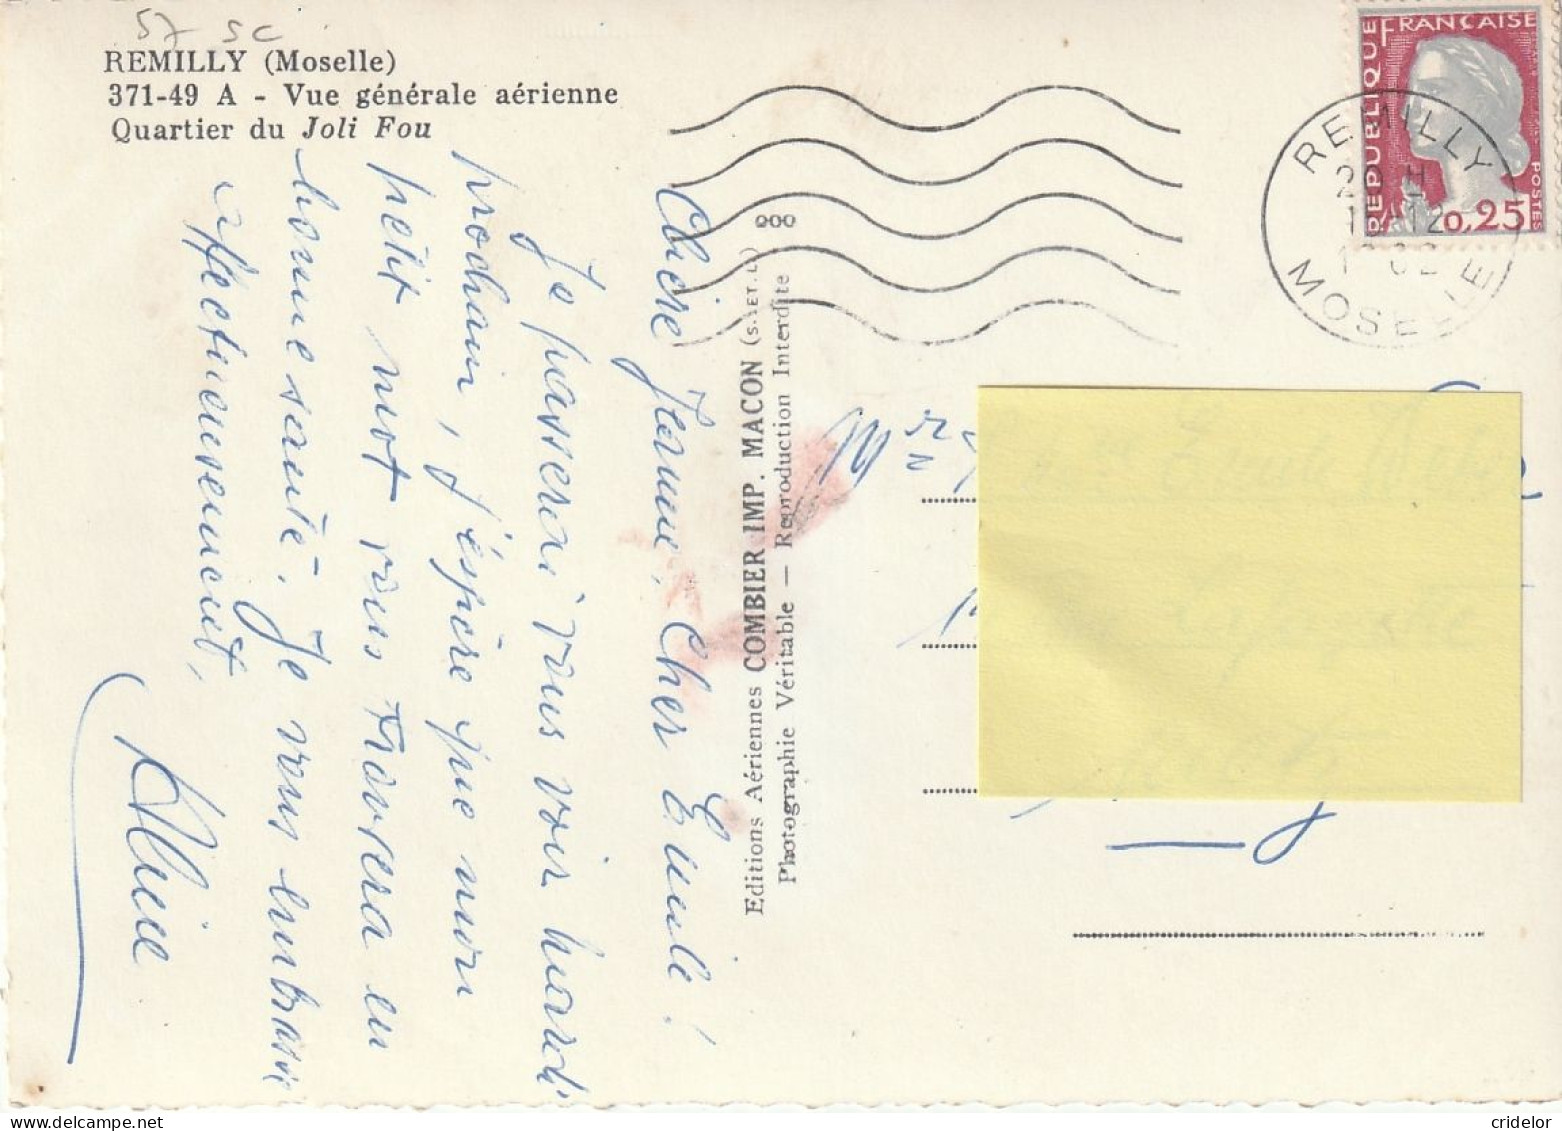 57 SC
REMILLY (Moselle)
371-49 A - Vue générale aérienne
Quartier du Joli Fou
RÉPUBLIQUE FRANÇAISE
POSTES
0,25
REMILLY
MOSELLE
200
Editions Aériennes COMBIER IMP. MACON (S.-ET-L.)
Photographie Véritable — Reproduction Interdite
Chère Jeanne, Cher Emile!
Je passerai vous voir mardi
prochain, j'éspère que mon
petit mot vous travera en
bonne santé. Je vous embrasse
affectueusement,
Aline
cridelor